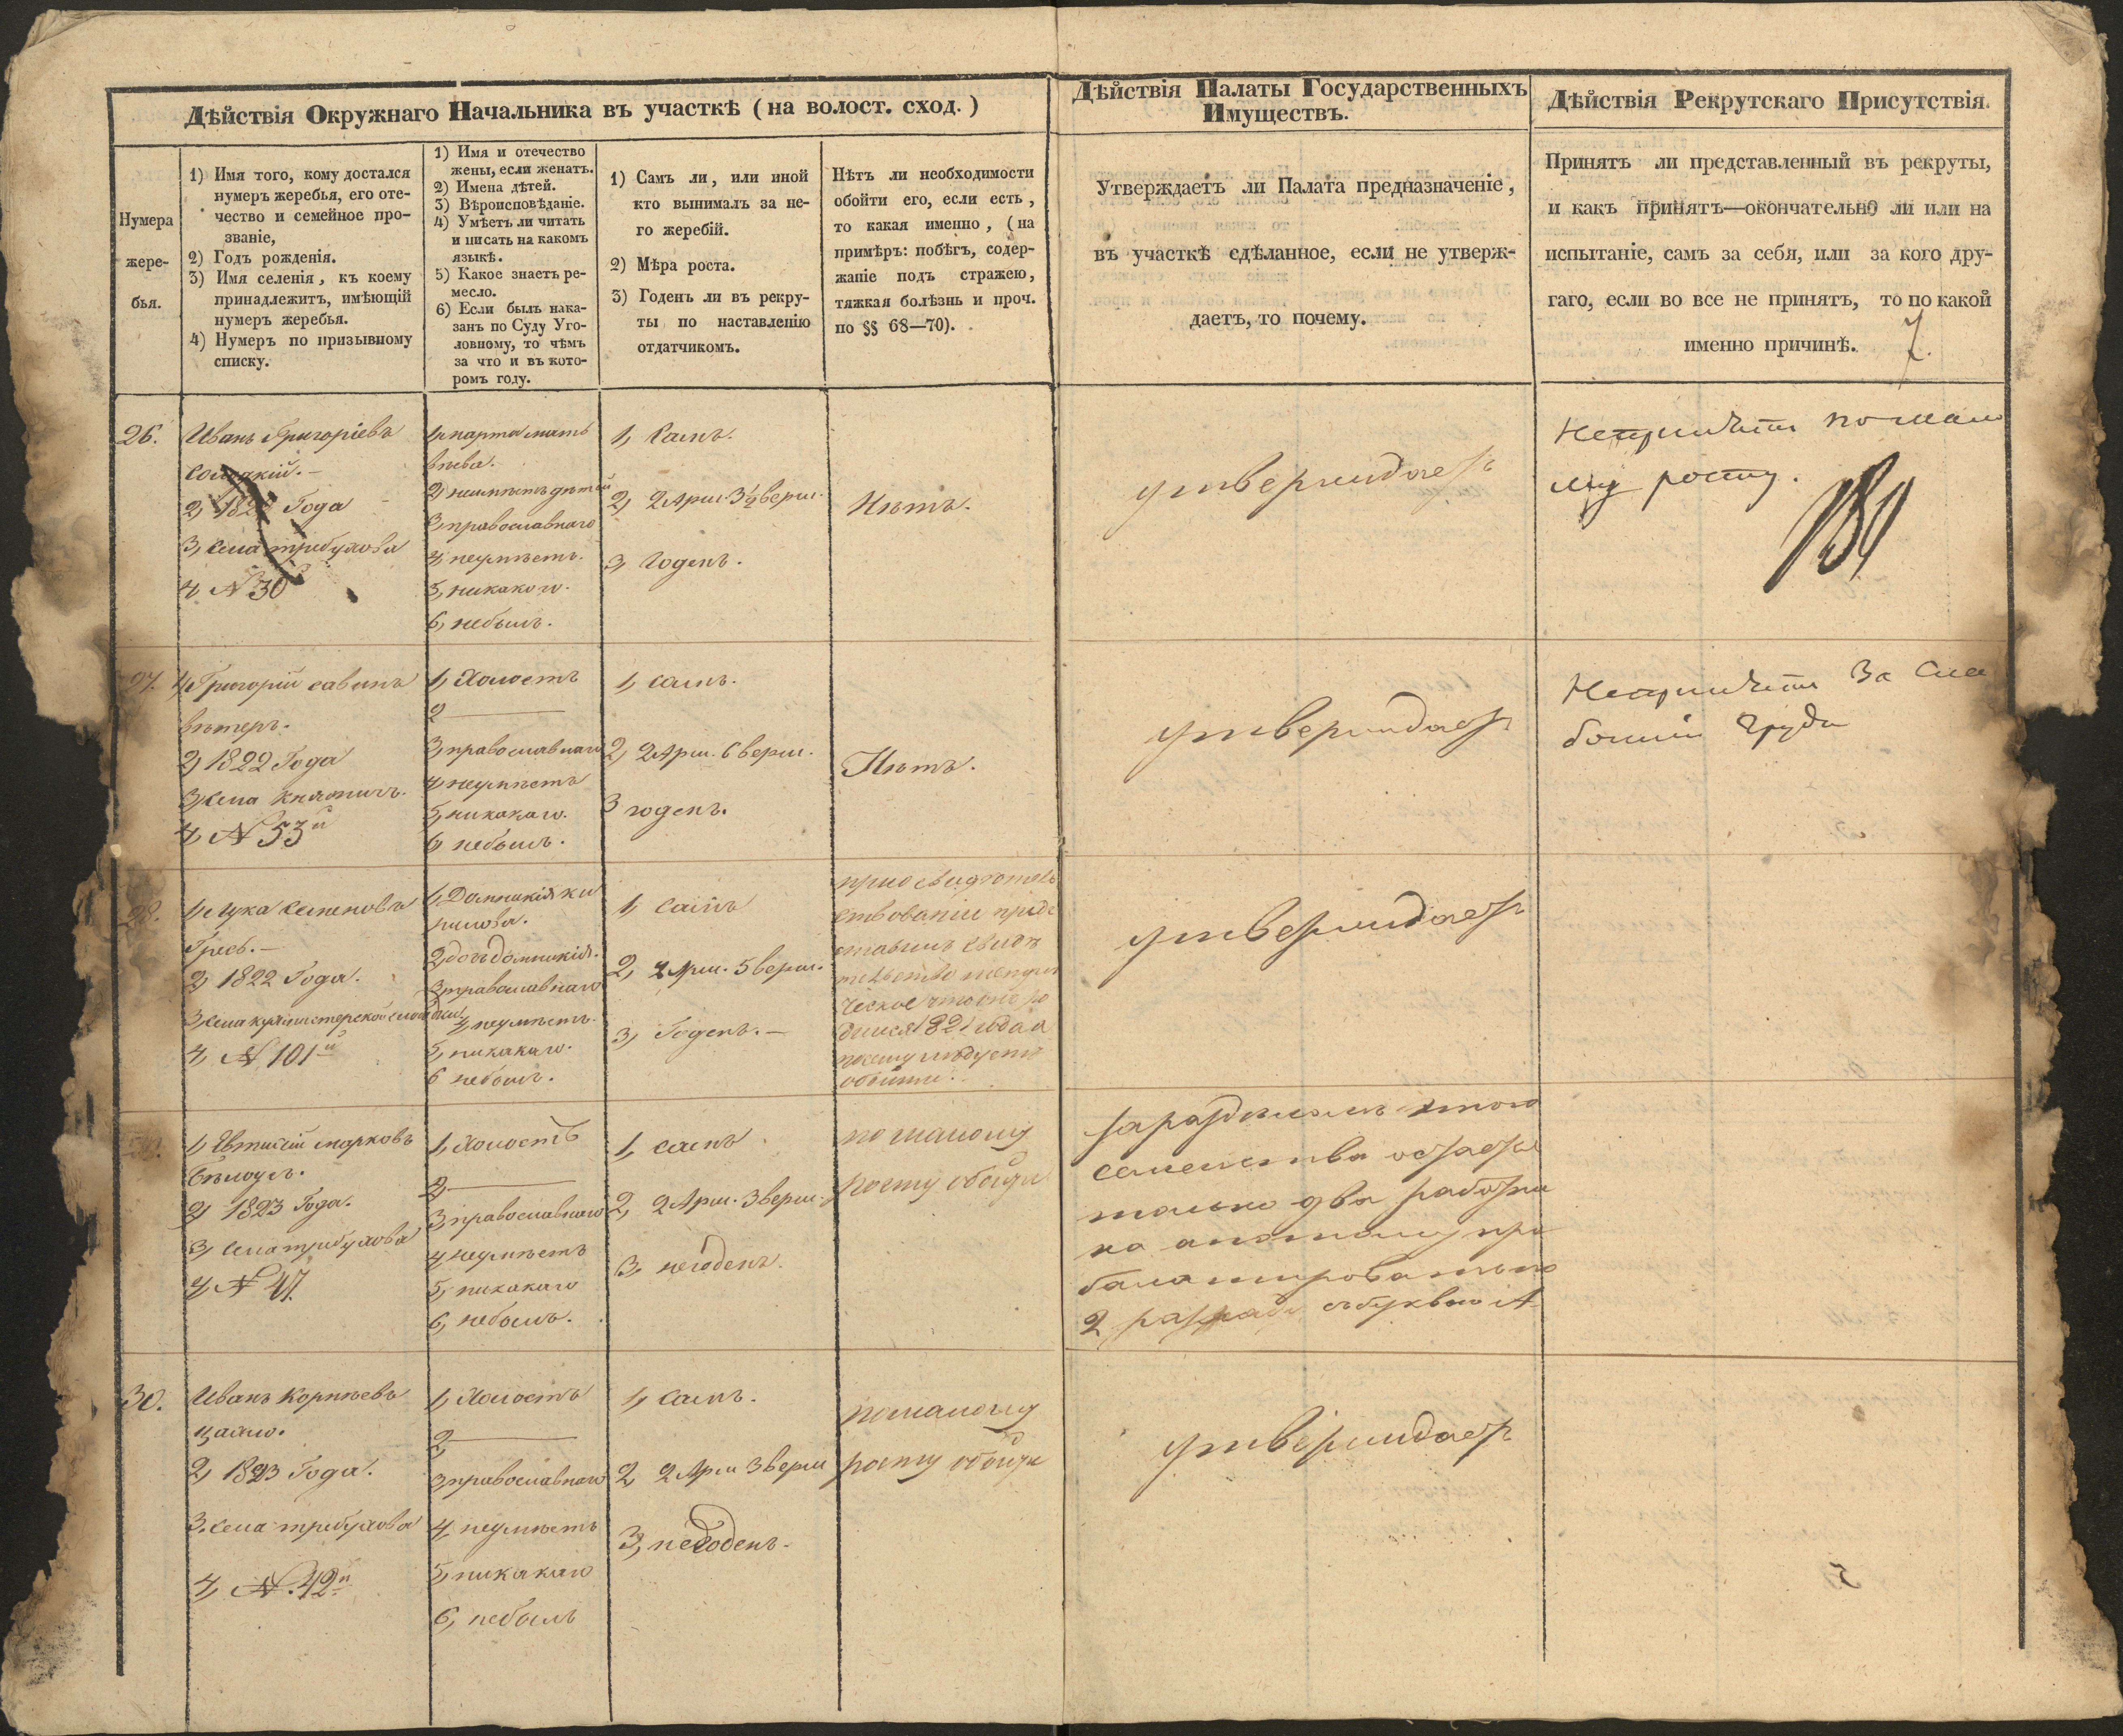 Дѣйствія Окружнаго Начальника въ участкѣ (на волост. сход.)
Дѣйствія Палаты Государственныхъ
Имуществъ.
Дѣйствія Рекрутскаго Присутствія.
Нумера
жере-
бья.
1) Имя того, кому достался
нумеръ жеребья, его оте-
чество и семейное про-
званіе,
2) Годъ рожденія.
3) Имя селенія, къ коему
принадлежитъ, имѣющій
нумеръ жеребья.
4) Нумеръ по призывному
списку.
1) Имя и отечество
жены, если женатъ.
2) Имена дѣтей.
3) Вѣроисповѣданіе.
4) Умѣетъ ли читать
и писать на какомъ
языкѣ.
5) Какое знаетъ ре-
месло.
6) Если былъ нака-
занъ по Суду Уго-
ловному, то чѣмъ
за что и въ кото-
ромъ году.
1) Самъ ли, или иной
кто вынималъ за не-
го жеребій.
2) Мѣра роста.
3) Годенъ ли въ рекру-
ты по наставленію
отдатчикомъ.
Нѣтъ ли необходимости
обойти его, если есть,
то какая именно, (на
примѣръ: побѣгъ, содер-
жаніе подъ стражею,
тяжкая болѣзнь и проч.
по §§ 68—70).
Утверждаетъ ли Палата предназначеніе,
въ участкѣ сдѣланное, если не утверж-
даетъ, то почему.
Принятъ ли представленный въ рекруты,
и какъ принятъ—окончательно ли или на
испытаніе, самъ за себя, или за кого дру-
гаго, если во все не принятъ, то по какой
именно причинѣ.
7
26.
Иванъ Григоріевъ
2) Года
3, села трибухова
4, N 30
2, неимѣетъ дѣтей
3, православнаго
4, неумѣетъ.
5, никакого.
6, небылъ.
1, Самъ.
2, 2 Арш. 3½ верш.
3, Годенъ.
Нѣтъ.
утверждаетъ
Непринятъ по мало
му росту.
27.
1, Григорій Савинъ
вѣтеръ.
2) 1822 Года
3) села
4, N 53й
1, Холостъ
2
3, православнаго
4, неумѣетъ
5, никакаго.
6, небылъ.
1, самъ.
2, 2 Арш. 6 верш.
3 годенъ.
Нѣтъ.
утверждаетъ
Непринятъ За Сла
бостію Груди
28.
1, Лука Семеновъ
2, 1822 Года.
3, села
4, N 101й
1, Домникія Ки
рилова.
2, дочъ домникія.
3, православнаго
4, неумѣетъ.
5, никакаго.
6 небылъ.
1, Самъ
2, 2 Арш. 5 верш.
3, Годенъ.—
при освидѣтель
ствованіи предс
тавилъ свидѣ
тельство метри
ческое что онъ ро
дился 1821 года а
посему слѣдуетъ
обойти.
утверждаетъ
1, Евтихій марковъ
Бѣлоусъ.
2, 1823 Года.
3, села трибухова
4, N 47
1, Холостъ
2
3, православнаго
4, неумѣетъ
5, никакаго
6, небылъ.
1, самъ
2, 2 Арш. 3 верш.
3, негоденъ.
по малому
росту обойди
за раздѣломъ этого
семейства остаетъ
только два работни
ка а потому про
2 разряда съ буквою А
30.
Иванъ Корнѣевъ
2, 1823 Года.
3, села трибухова
4, N. 42й
1, Холостъ
2,
3, православнаго
4, неумѣетъ
5, никакаго
6, небылъ
1, Самъ.
2, 2 Арш 3 верш
3, негоденъ.
по малому
росту обойди
утверждаетъ